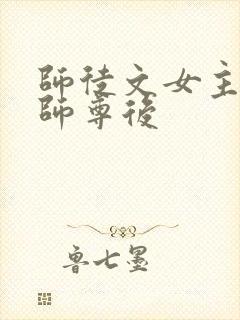 師徒文女主
師尊後
魯七墨